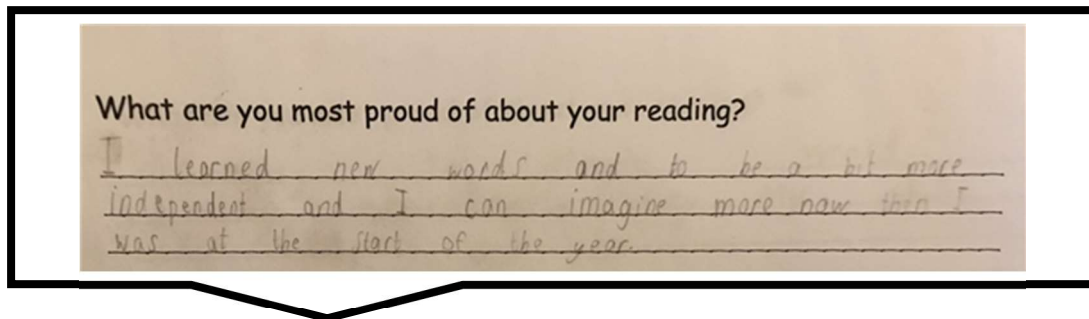 What are you most proud of about your reading?
I learned new words and to be a bit more
independent and I can imagine more now than I
was at the start of the year.